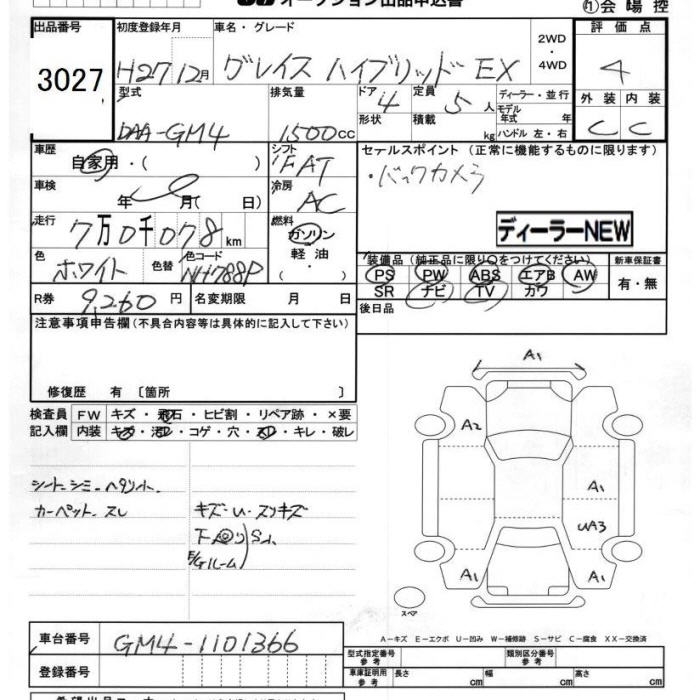 オークション出品申込書
① 会場控
出品番号 3027
初度登録年月 H27 12月
車名・グレード グレイス ハイブリッド EX
2WD・4WD
評価点 4
外装 C 内装 C
型式 DAA-GM4
排気量 1500cc
ドア 4 形状
定員 5人 積載 kg
ディーラー・並行
モデル年式 年
ハンドル 左・右
車歴 自家用・( )
シフト FAT
セールスポイント (正常に機能するものに限ります)
・バックカメラ
車検 年 月( 日)
冷房 AC
走行 7万0千078km
燃料 ガソリン・軽油・( )
ディーラーNEW
色 ホワイト 色替 色コード NH788P
装備品 (純正品に限り○をつけてください)
新車保証書 有・無
PS PW ABS エアB AW
SR ナビ TV カワ
R券 9,260円 名変期限 月 日
後日品
注意事項申告欄 (不具合内容等は具体的に記入して下さい)
修復歴 有 〔箇所 〕
検査員記入欄
FW キズ・飛石・ヒビ割・リペア跡・×要
内装 キズ・汚レ・コゲ・穴・スレ・キレ・破レ
シート シミ ヘタリ
カーペット スレ
キズ・U・スリキズ
A1
A2
A1
UA3
A1 A1
スペア
A-キズ E-エクボ U-凹み W-補修跡 S-サビ C-腐食 XX-交換済
車台番号 GM4-1101366
登録番号
型式指定番号 参考 類別区分番号 参考
車庫証明用 参考 長さ cm 幅 cm 高さ cm